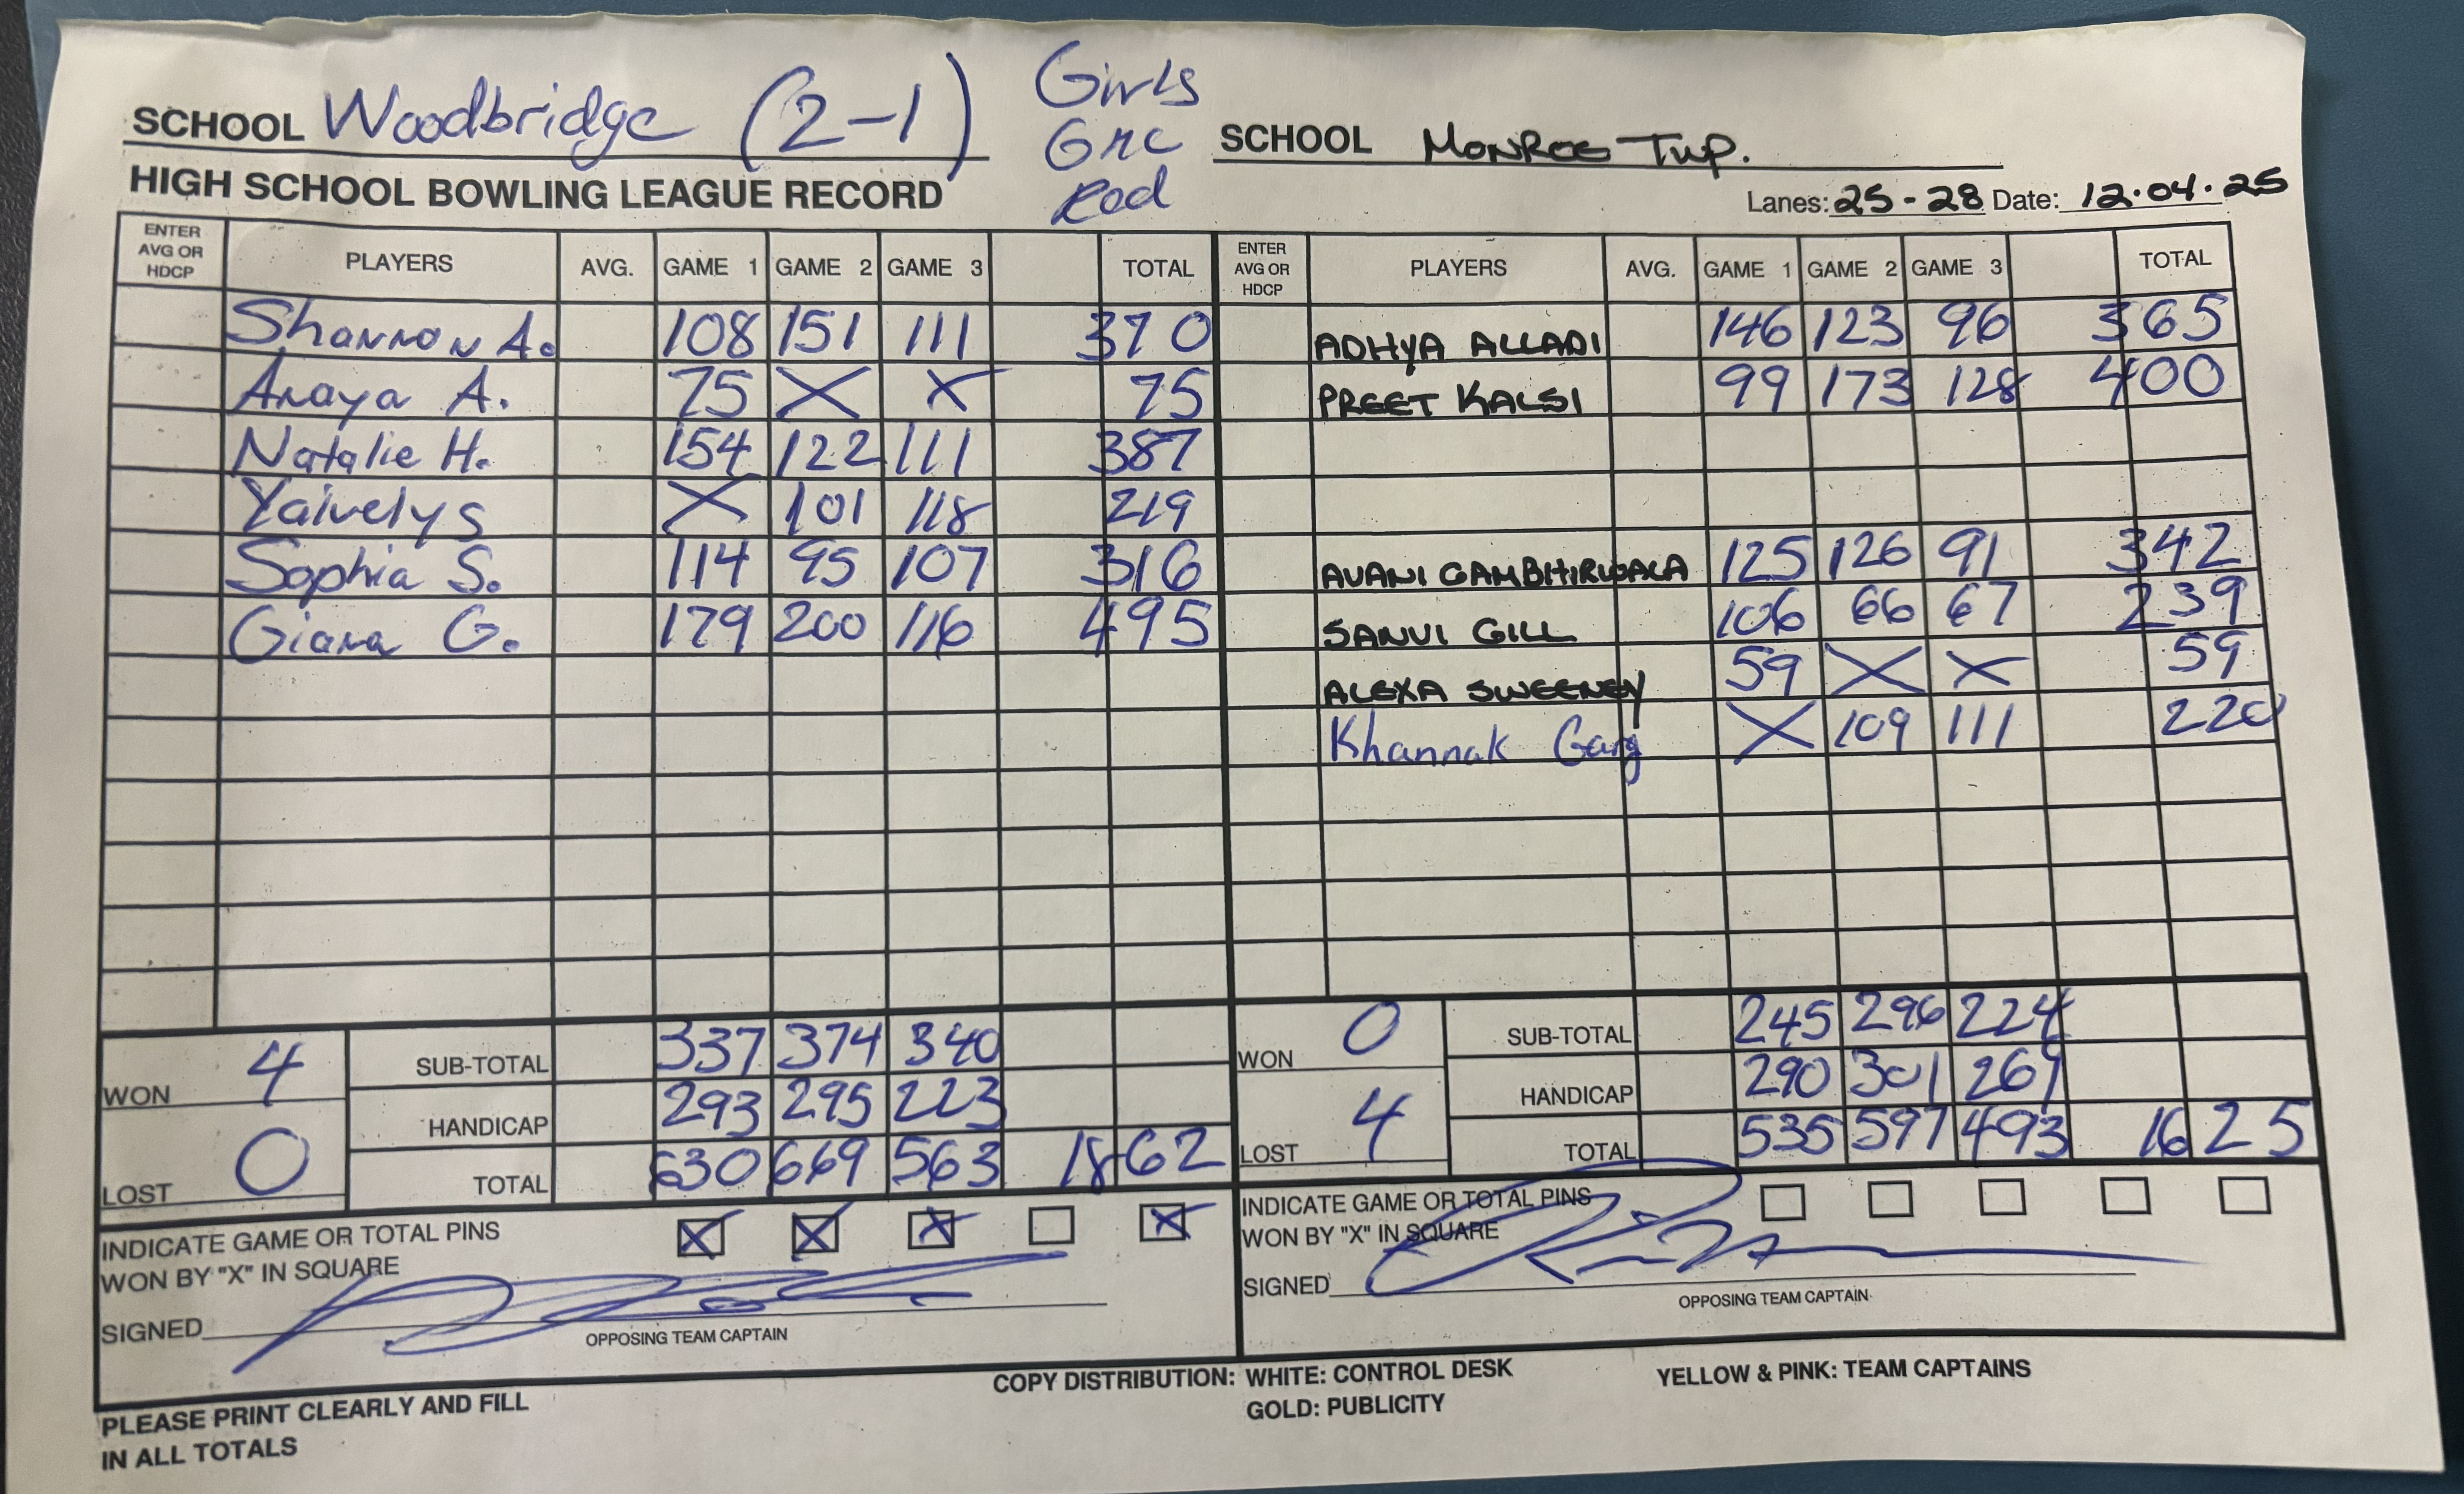 SCHOOL Woodbridge (2-1) Girls
GMC
Red
SCHOOL MONROE TWP.
HIGH SCHOOL BOWLING LEAGUE RECORD
Lanes: 25-28 Date: 12.04.25
ENTER AVG OR HDCP PLAYERS AVG. GAME 1 GAME 2 GAME 3 TOTAL ENTER AVG OR HDCP PLAYERS AVG. GAME 1 GAME 2 GAME 3 TOTAL
Shannon A. 108 151 111 370 ADHYA ALLADI 146 123 96 365
Anaya A. 75 X X 75 PREET KALSI 99 173 128 400
Natalie H. 154 122 111 387
Yaivelys X 101 118 219
Sophia S. 114 95 107 316 AVANI GAMBHIRWALA 125 126 91 342
Giana G. 179 200 116 495 SANVI GILL 106 66 67 239
ALEXA SWEENEY 59 X X 59
Khannak Garg X 109 111 220
WON 4 SUB-TOTAL 337 374 340 WON 0 SUB-TOTAL 245 296 224
HANDICAP 293 295 223 HANDICAP 290 301 269
LOST 0 TOTAL 630 669 563 1862 LOST 4 TOTAL 535 597 493 1625
INDICATE GAME OR TOTAL PINS X X X X INDICATE GAME OR TOTAL PINS
WON BY "X" IN SQUARE WON BY "X" IN SQUARE
SIGNED SIGNED
OPPOSING TEAM CAPTAIN OPPOSING TEAM CAPTAIN
PLEASE PRINT CLEARLY AND FILL
IN ALL TOTALS
COPY DISTRIBUTION: WHITE: CONTROL DESK YELLOW & PINK: TEAM CAPTAINS
GOLD: PUBLICITY